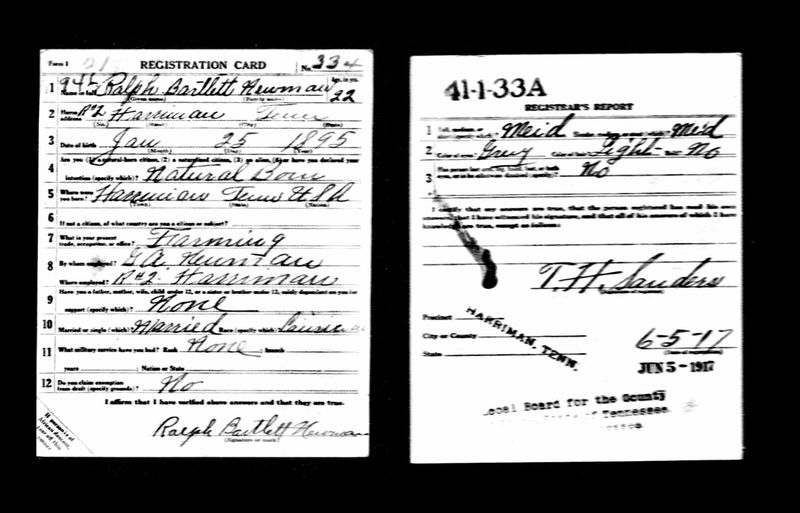 Form 1 REGISTRATION CARD No. 334
1 Name in full Ralph Bartlett Newman Age, in yrs. 22
(Given name) (Family name)
2 Home address R#2 Harriman Tenn
(No.) (Street) (City) (State)
3 Date of birth Jan 25 1895
(Month) (Day) (Year)
4 Are you (1) a natural-born citizen, (2) a naturalized citizen, (3) an alien, (4) or have you declared your
intention (specify which)? Natural Born
5 Where were you born? Harriman Tenn U S A
(Town) (State) (Nation)
6 If not a citizen, of what country are you a citizen or subject?
7 What is your present trade, occupation, or office? Farming
8 By whom employed? G A. Newman
Where employed? R#2. Harriman
9 Have you a father, mother, wife, child under 12, or a sister or brother under 12, solely dependent on you for
support (specify which)? None
10 Married or single (which)? Married Race (specify which)?
11 What military service have you had? Rank None ; branch
years ; Nation or State
12 Do you claim exemption from draft (specify grounds)? No
I affirm that I have verified above answers and that they are true.
Ralph Bartlett Newman
(Signature or mark)
If person is of African descent, tear off this corner
41-1-33A
REGISTRAR'S REPORT
1 Tall, medium, or short (specify which)? Meid Slender, medium, or stout (which)? Meid
2 Color of eyes? Grey Color of hair? Light Bald? No
3 Has person lost arm, leg, hand, foot, or both
eyes, or is he otherwise disabled (specify)? No
I certify that my answers are true, that the person registered has read his own
answers, that I have witnessed his signature, and that all of his answers of which I have
knowledge are true, except as follows:
T. H. Sanders
Precinct
HARRIMAN, TENN.
City or County
State
6-5-17
(Date of registration)
JUN 5 - 1917
Local Board for the County
Tennessee